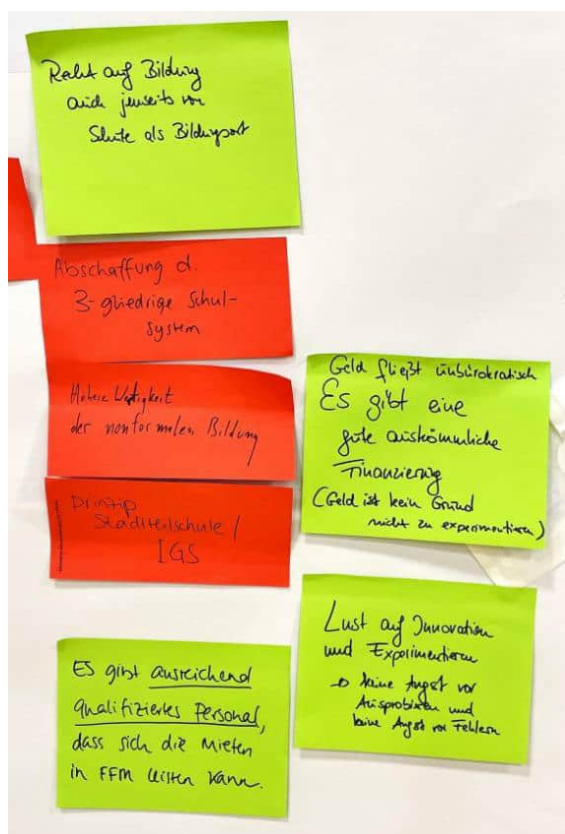 Recht auf Bildung
auch jenseits von
Schule als Bildungsort
Abschaffung d.
3-gliedrige Schul-
system
Höhere Wertigkeit
der nonformalen Bildung
Prinzip
Stadtteilschule /
IGS
Es gibt ausreichend
qualifiziertes Personal,
dass sich die Mieten
in FFM leisten kann.
Geld fließt unbürokratisch
Es gibt eine
gute auskömmliche
Finanzierung
(Geld ist kein Grund
nicht zu experimentieren)
Lust auf Innovation
und Experimentieren
→ keine Angst vor
Ausprobieren und
keine Angst vor Fehlern